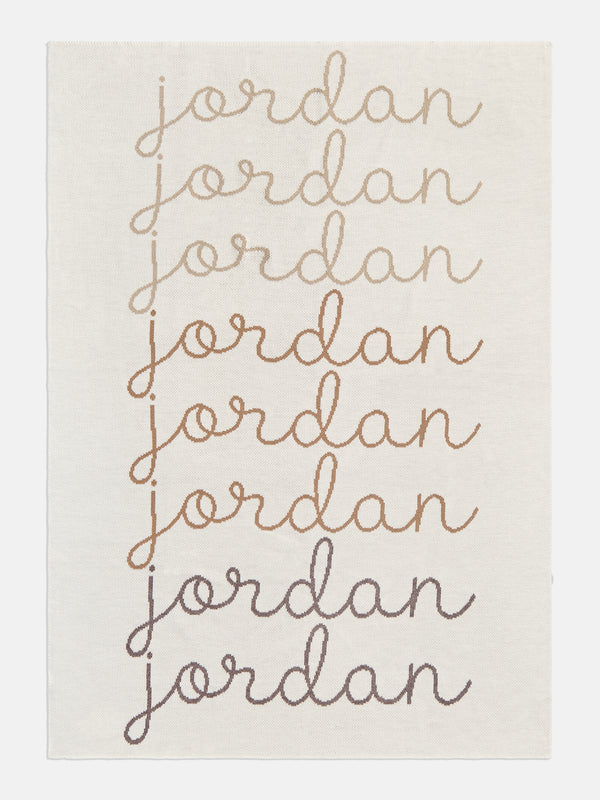 jordan
jordan
jordan
jordan
jordan
jordan
jordan
jordan